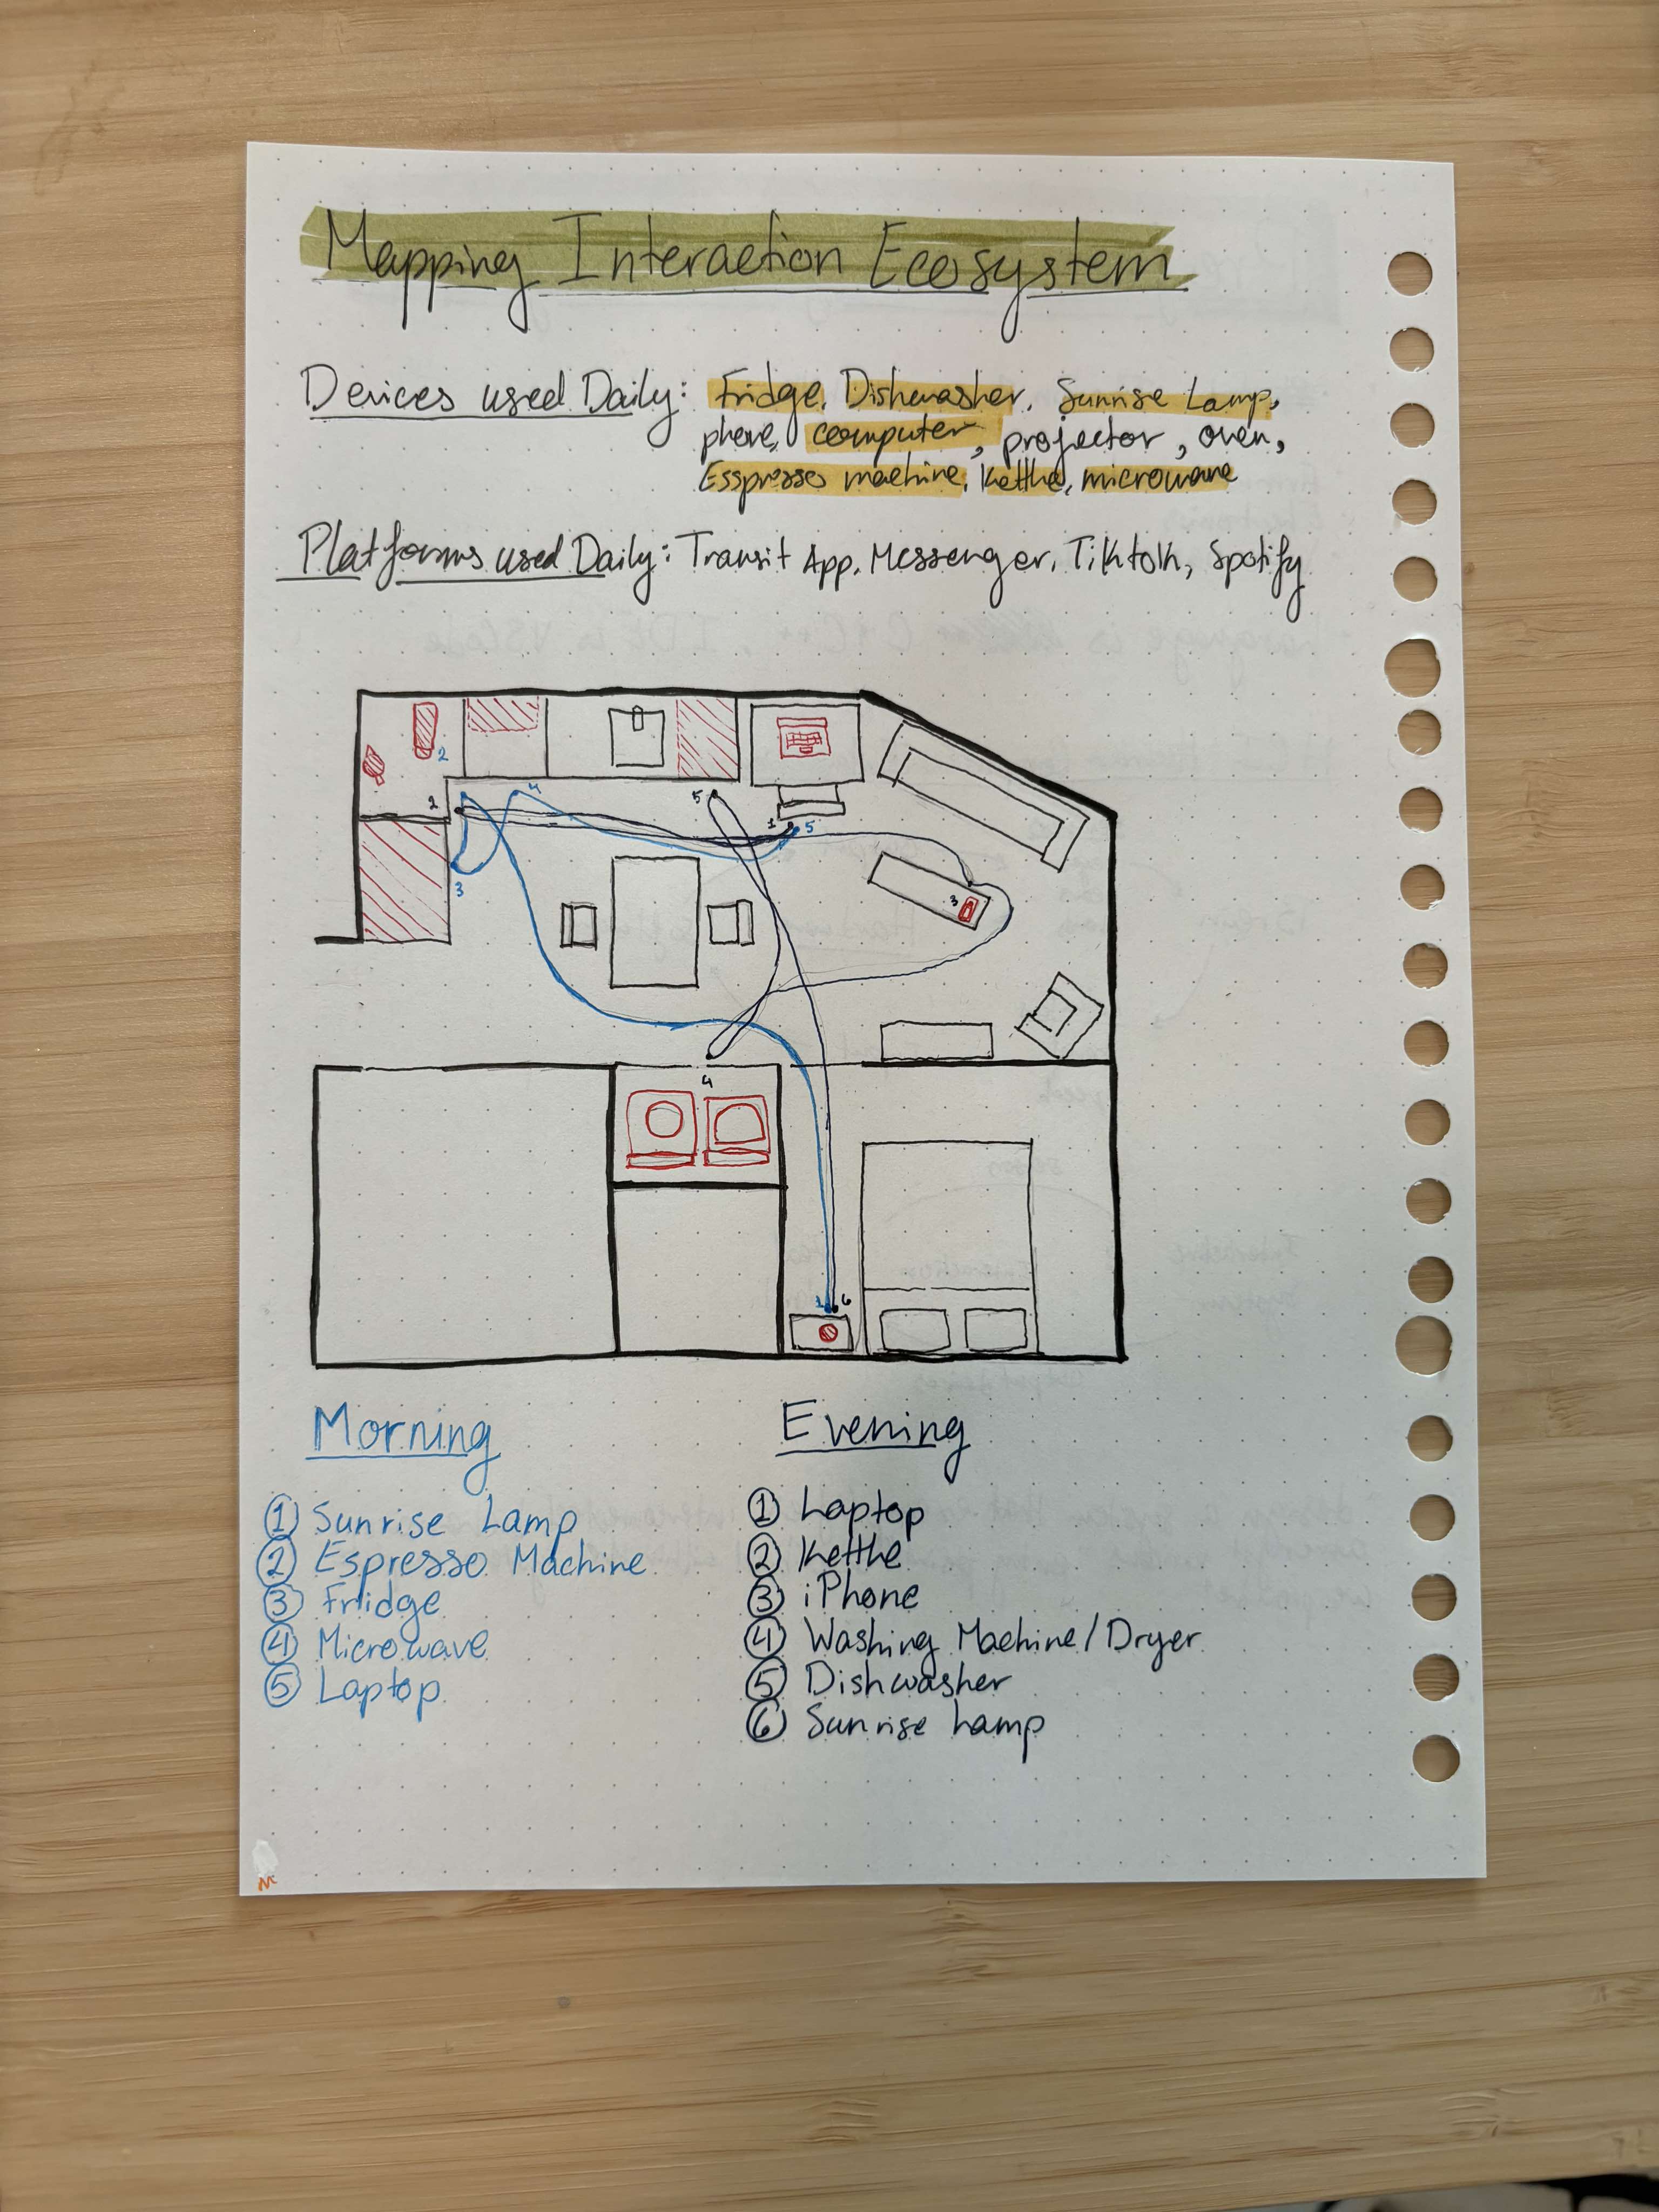 Mapping Interaction Ecosystem
Devices used Daily: Fridge, Dishwasher, Sunrise Lamp,
phone, computer, projector, oven,
Esspresso machine, Kettle, microwave
Platforms used Daily: Transit App, Messenger, Tiktok, Spotify
2
4
2
5
1
5
3
3
4
1
6
Morning
1 Sunrise Lamp
2 Espresso Machine
3 Fridge
4 Microwave
5 Laptop
Evening
1 Laptop
2 Kettle
3 iPhone
4 Washing Machine/Dryer
5 Dishwasher
6 Sunrise Lamp